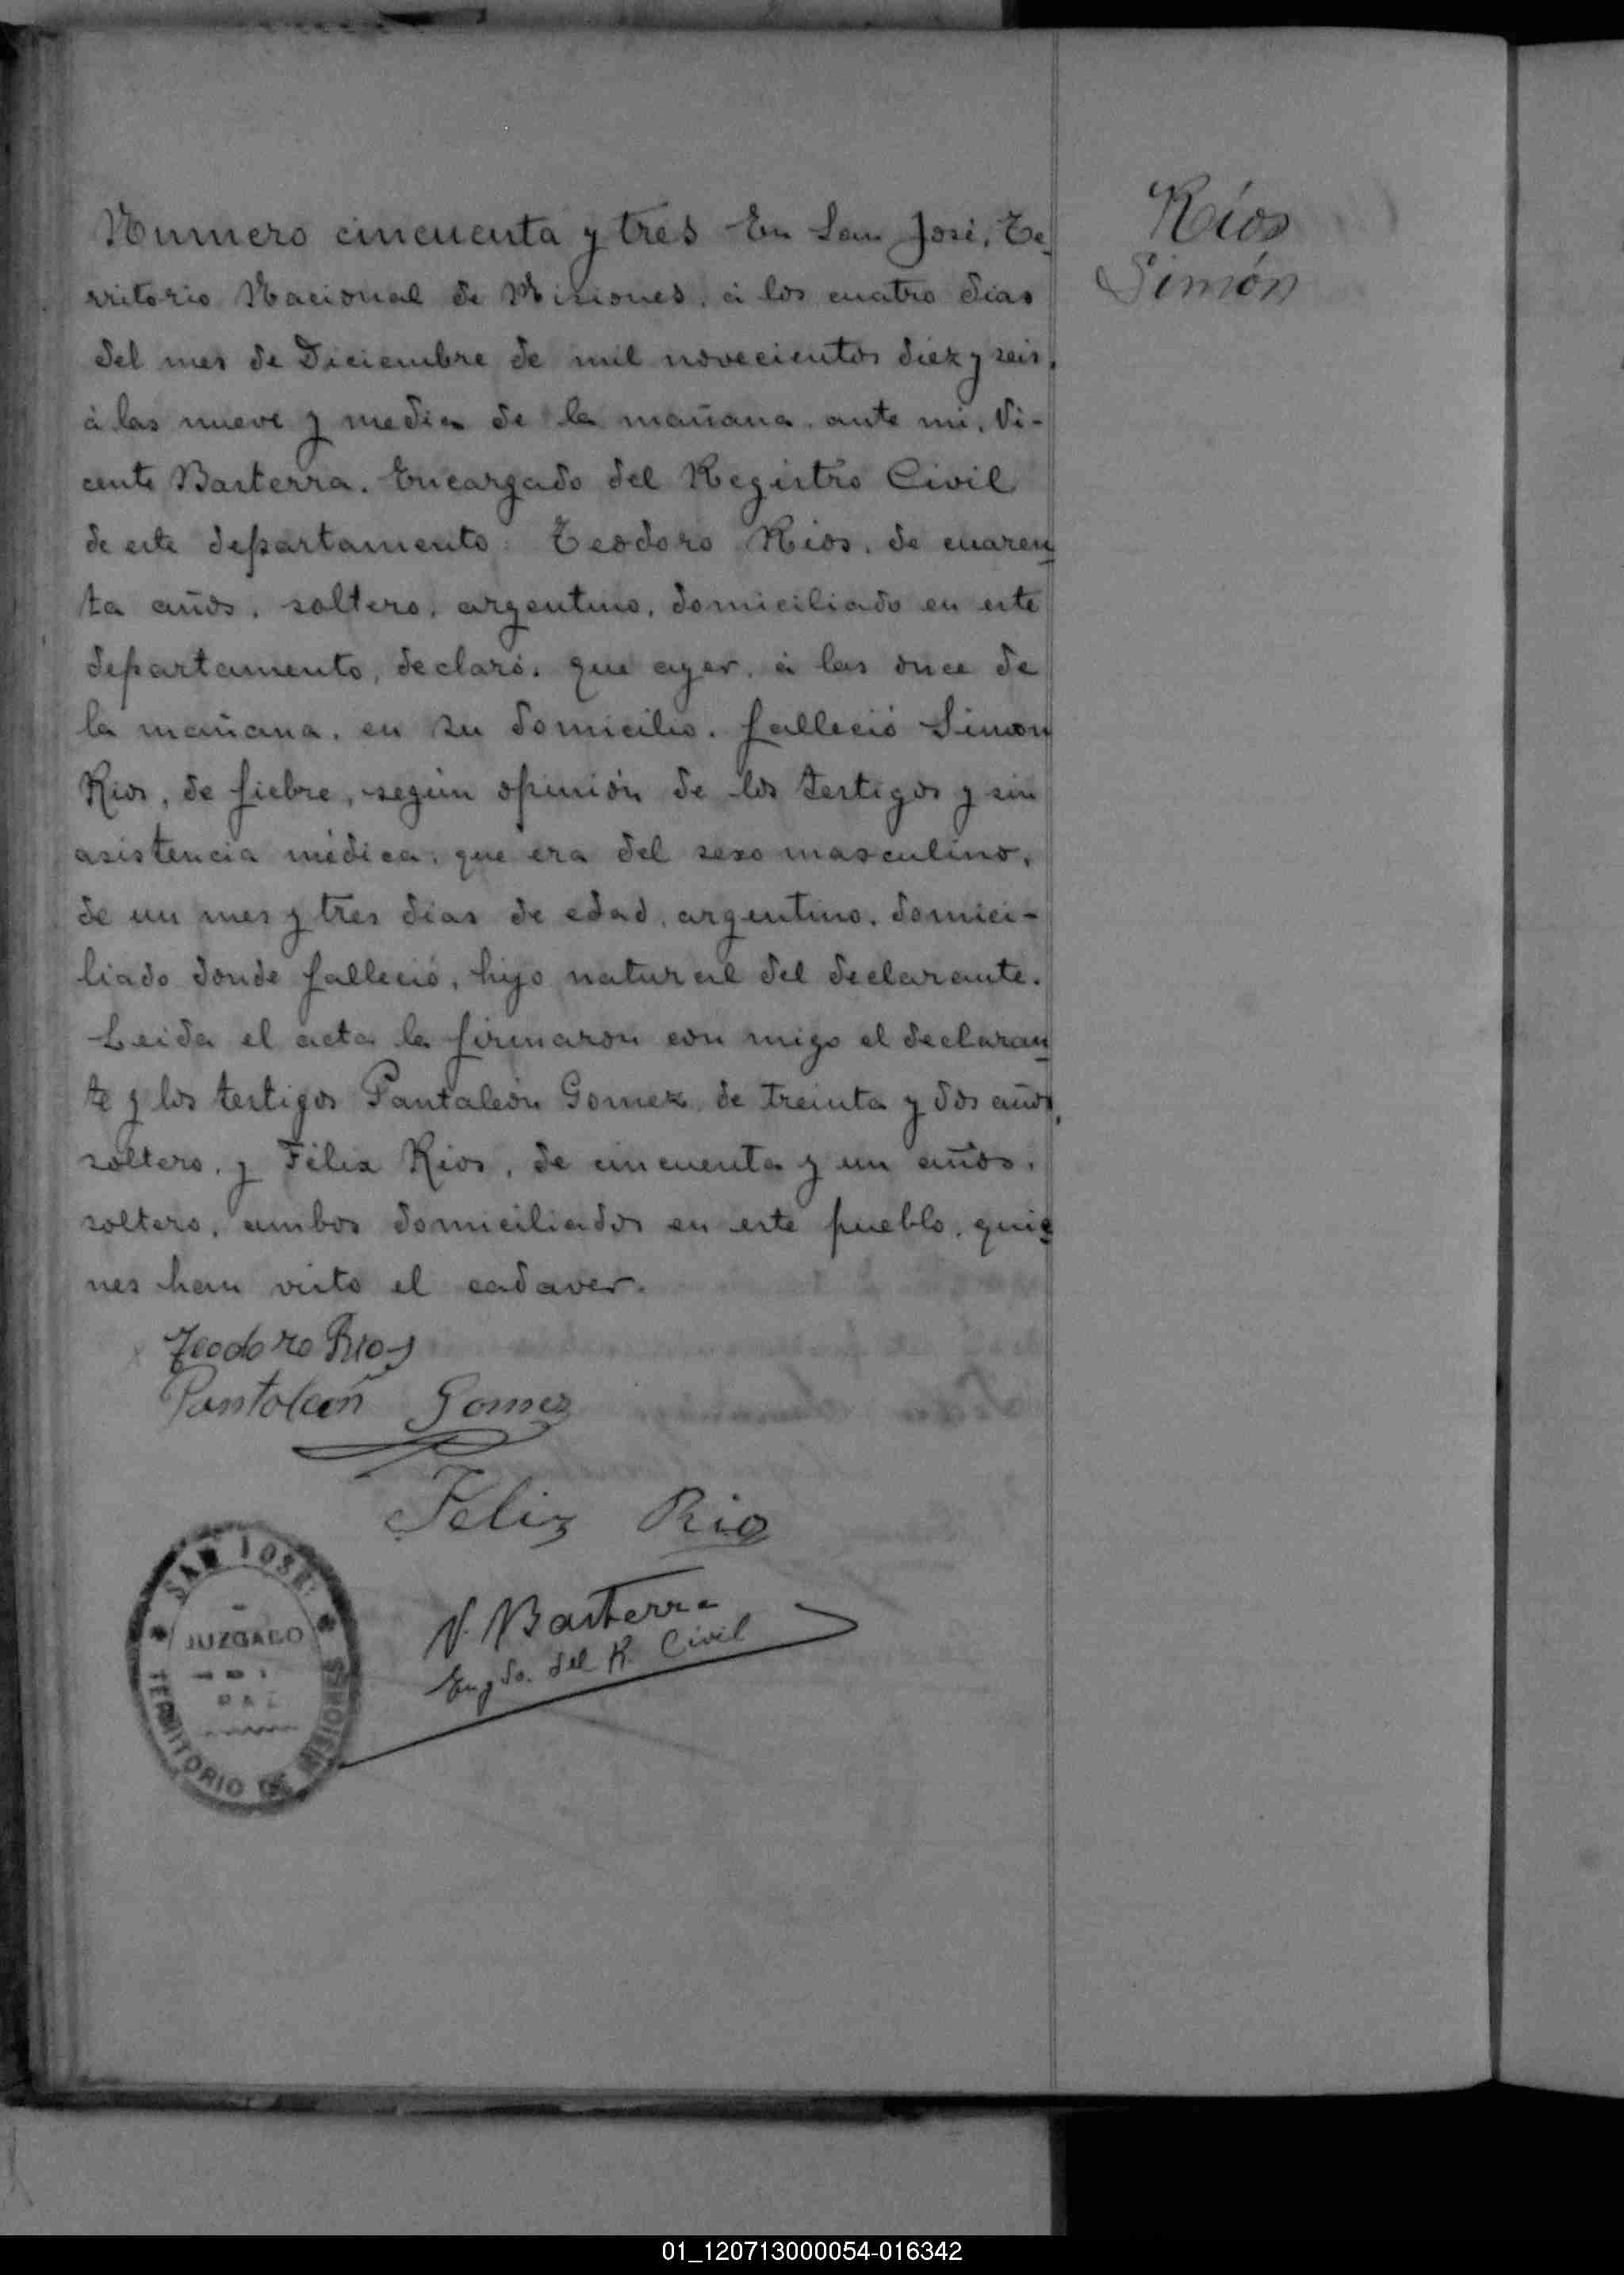 Numero cincuenta y tres En San José, Te-
rritorio Nacional de Misiones, á los cuatro dias
del mes de Diciembre de mil novecientos diez y seis,
á las nueve y media de la mañana, ante mi, Vi-
cente Basterra, Encargado del Registro Civil
de este departamento: Teodoro Rios, de cuaren-
ta años, soltero, argentino, domiciliado en este
departamento, declaró: que ayer, á las once de
la mañana, en su domicilio, falleció Simon
Rios, de fiebre, según opinión de los testigos y sin
asistencia médica; que era del sexo masculino,
de un mes y tres dias de edad, argentino, domici-
liado donde falleció, hijo natural del declarante.
Leida el acta la firmaron con migo el declaran-
te y los testigos Pantaleón Gomez, de treinta y dos años,
soltero, y Félix Rios, de cincuenta y un años,
soltero, ambos domiciliados en este pueblo, quie-
nes han visto el cadaver.
Teodoro Rios
Pantoleon Gomez
Feliz Rio
V. Basterra
Engdo. del R. Civil
SAN JOSE
JUZGADO
DE
PAZ
TERRITORIO DE MISIONES
Ríos
Simón
01_120713000054-016342